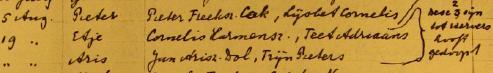 5 Aug. Pieter Pieter Freeksz. Cok, Lijsbet Cornelis
19 " Etje Cornelis Harmensz., Teet Adriaans
" " Aris Jan Arisz. Dol, Trijn Pieters
dese 3 sijn
tot
hooft
gedoopt